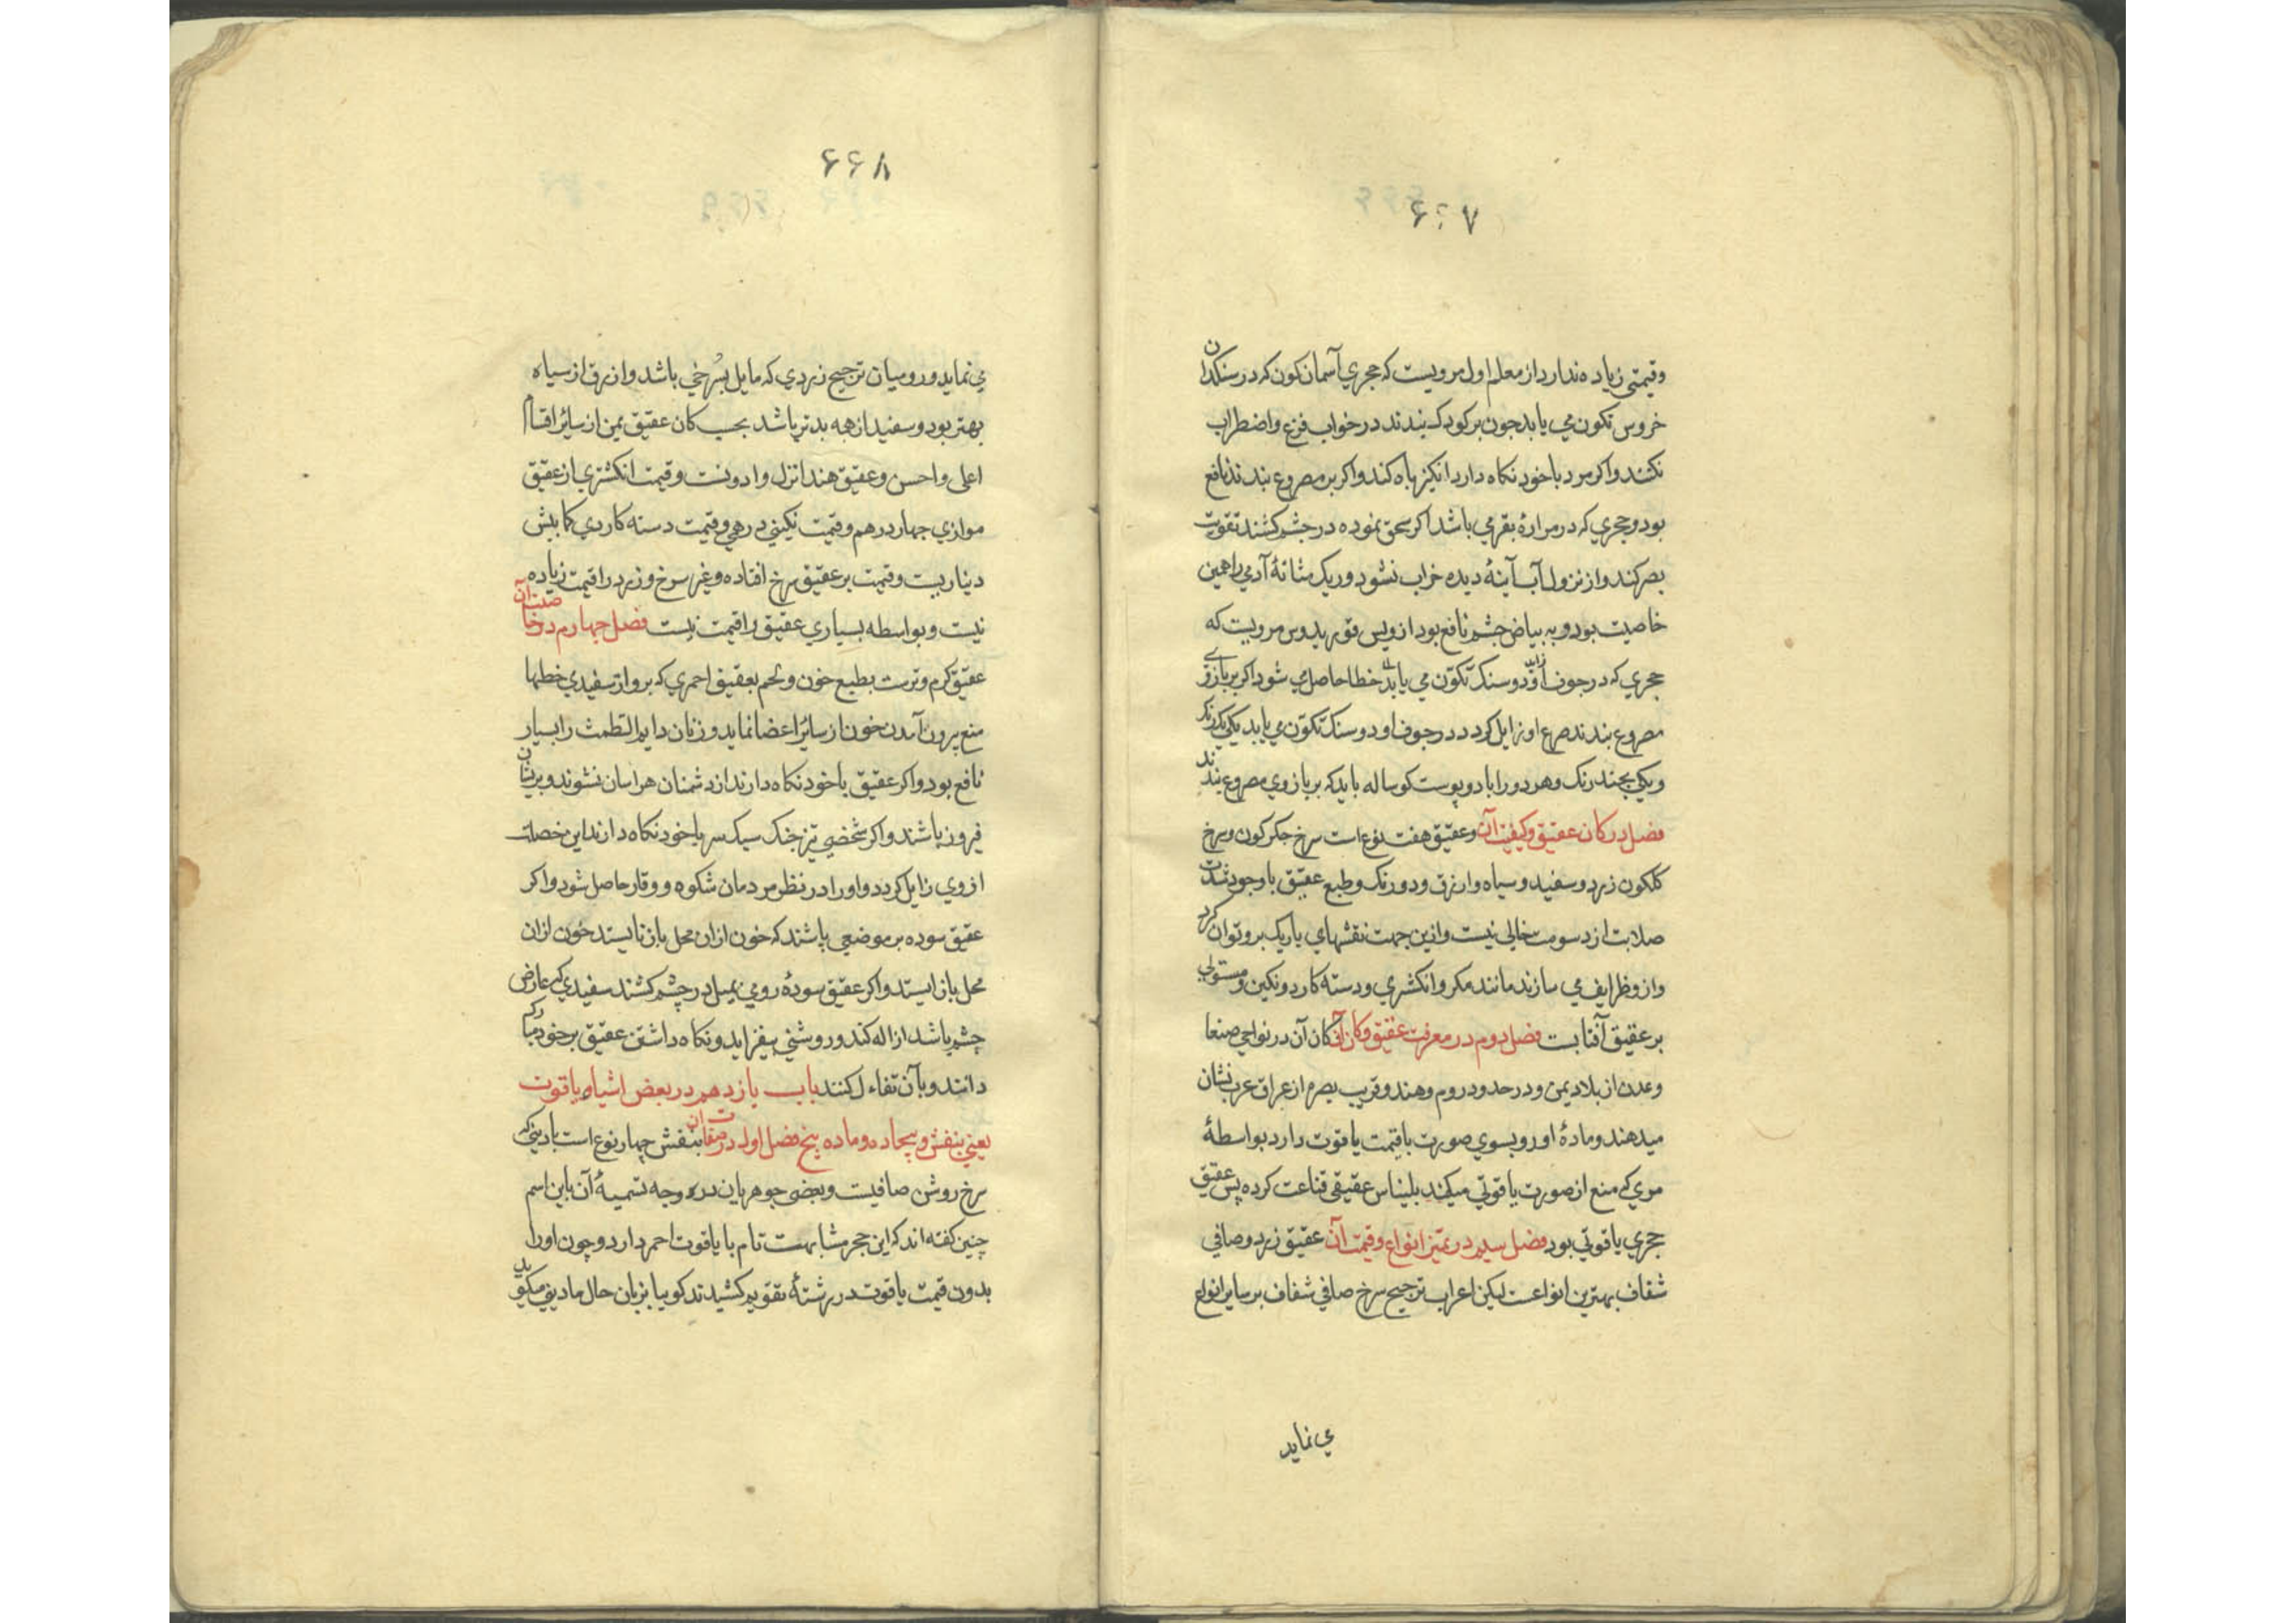 ۶۶۷
وقیمتی زیاده ندارد از معلم اول مرویست که حجری آسمان کون که در سنکدان
خروس تکون می یابد جون بر کودک بندند در خواب فزع واضطراب
نکند واکر مرد با خود نکاه دارد انکیز باه کند واکر بر مصروع بندند نافع
بود وحجری که در مرارهٔ بقر می باشد اکر سحق نموده در چشم کشند تقویت
بصر کند واز نزول آب آینهٔ دیده خراب نشود وریک مثانهٔ آدمی را همین
خاصیت بود وبه بیاض چشم نافع بود از ویس قوریدوس مرویت که
حجری که در جوف زاید او دو سنک تکوّن می یابد خطا حاصل می شود اکر بر بازوی
مصروع بندند صرع او زایل کردد در جوف او دو سنک تکوّن می یابد یکی یکرنک
ویکی بچند رنک وهر دو را با دو پوست کوساله باید که بر بازوی مصروع بندند
فصل در کان عقیق وکیفیت آن وعقیق هفت نوع است سرخ جکر کون وسرخ
کلکون زرد وسفید وسیاه وازرق ودو رنک وطبع عقیق با وجود شدت
صلابت از دسومت خالی نیست وازین جهت نقشهای باریک برو توان کرد
واز وظرایف می سازند مانند مکر وانکشتری ودسته کارد ونکین ومستولی
بر عقیق آفتابست فصل دوم در معرفت عقیق وکان آن کان آن در نواحی صنعا
وعدن از بلاد یمن ودر حدود روم وهند وقریب بصره از عراق عرب نشان
میدهند ومادهٔ او رو بسوی صورت با قیمت یاقوت دارد بواسطهٔ
مری که منع از صورت یاقوتی میکند بلیناس عقیقی قناعت کرده پس عقیق
حجری یاقوتی بود فصل سیم در تمیز انواع وقیمت آن عقیق زرد وصافی
شفاف بهترین انواعست لیکن اعراب ترجیح سرخ صافی شفاف بر سایر انواع
می نماید
۶۶۸
می نماید ورومیان ترجیح زردی که مایل بسُرخی باشد وازرق از سیاه
بهتر بود وسفید از همه بدتر باشد بحسب کان عقیق یمن از سائر اقسام
اعلی واحسن وعقیق هند انزل وادونست وقیمت انکشتری از عقیق
موازی جهار درهم وقیمت نکینی درهمی وقیمت دسته کاردی کمابیش
دیناریست وقیمت بر عقیق سرخ افتاده وغیر سرخ وزرد را قیمت زیاده
نیست وبواسطه بسیاری عقیق را قیمت نیست فصل جهارم در خاصیت آن
عقیق کرم وترست بطبع خون وتختم بعقیق احمری که برو از سفیدی خطها
منع بیرون آمدن خون از سائر اعضا نماید وزنان دایم الطمث را بسیار
نافع بود واکر عقیق با خود نکاه دارند از دشمنان هراسان نشوند وبریشان
فیروز باشند واکر شخصی تیز جنک سبک سر با خود نکاه دارند این خصلت
از وی زایل کردد واو را در نظر مردمان شکوه ووقار حاصل شود واکر
عقیق سوده بر موضعی پاشند که خون ازان محل باز نایستد خون ازان
محل باز ایستد واکر عقیق سودهٔ رومی بمیل در چشم کشند سفیدی که عارض
چشم باشد ازاله کند وروشنی بیفزاید ونکاه داشتن عقیق بر خود مبارک
دانند وبآن تفاءل کنند باب یازدهم در بعض اشباه یاقوت
یعنی بنفش وبیجاده وماده بیخ فصل اول در صفات آن بنفش چهار نوع است بادینی که
سرخ روشن صافیست وبعضی جوهریان در وجه تسمیهٔ آن باین اسم
چنین کفته اند که این حجر مشابهت تام با یاقوت احمر دارد وچون او را
بدون قیمت یاقوت در رشتهٔ تقویم کشیدند کویا بزبان حال مادینی میکوید